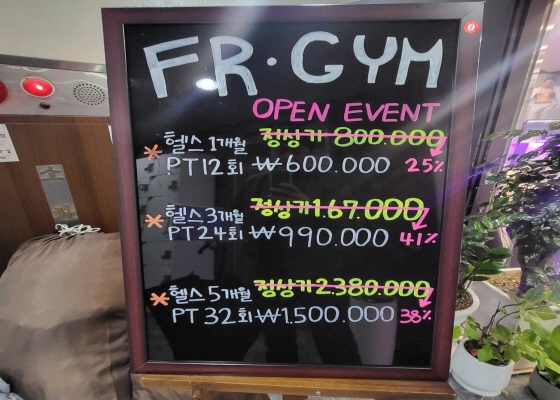 FR·GYM
OPEN EVENT
* 헬스 1개월 정상가 800.000
PT 12회 ₩600.000 25%
* 헬스 3개월 정상가 1.67.000
PT 24회 ₩990.000 41%
* 헬스 5개월 정상가 2.380.000
PT 32회 ₩1.500.000 38%